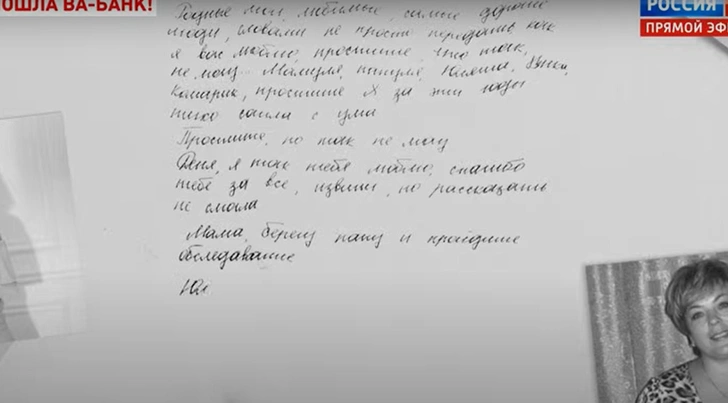 ОШЛА ВА-БАНК!
РОССИЯ
ПРЯМОЙ ЭФ
Родные мои, любимые, самые дорогие
люди, словами не просто передать, как
я вас люблю, простите, что так,
не могу... Мамуля, папуля,
Комарик, простите Я за эти годы
тихо сошла с ума
Простите, но так не могу
Деня, я так тебя люблю, спасибо
тебе за все, извини, но рассказать
не смогла
Мама, береги папу и пройдите
обследование
Юл